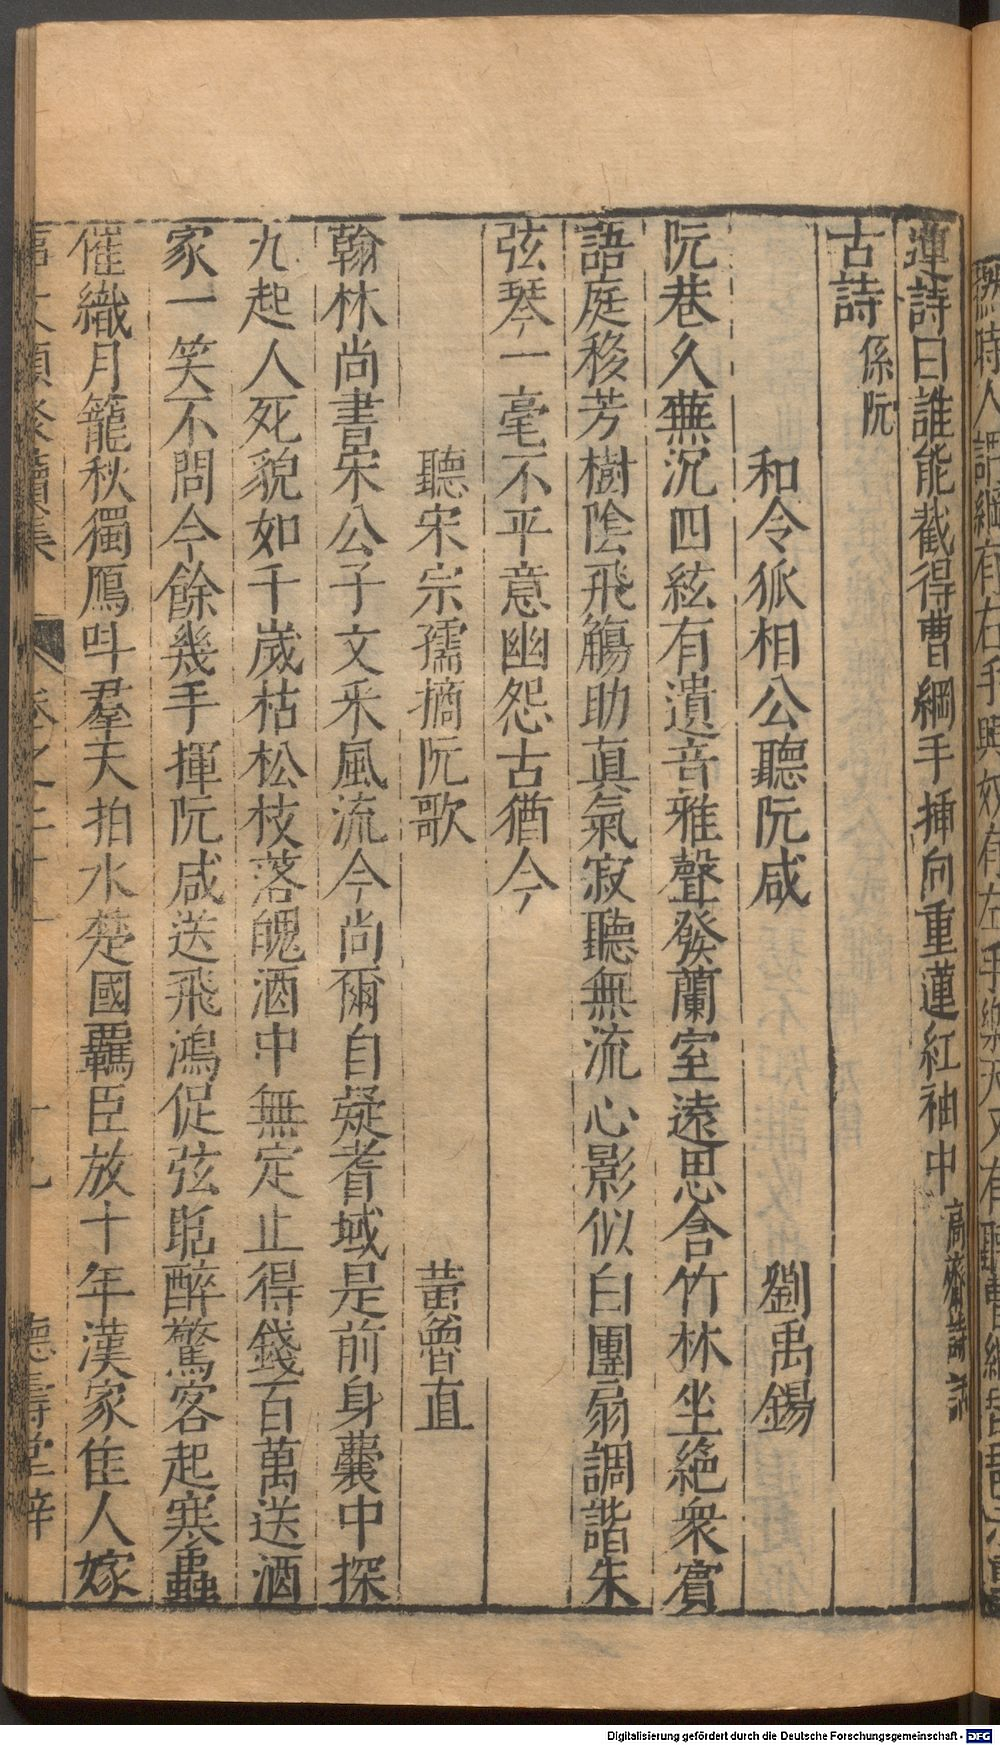 蓮詩曰誰能截得曹綱手揷向重蓮紅袖中高齋詩話
古詩係阮
和令狐相公聽阮咸 劉禹錫
阮巷久蕪沉四絃有遺音雅聲發蘭室遠思含竹林坐絶衆賓
語庭移芳樹陰飛觴助真氣寂聽無流心影似白團扇調諧朱
弦琴一毫不平意幽怨古猶今
聽宋宗孺摘阮歌 黄魯直
翰林尚書宋公子文采風流今尚爾自疑耆域是前身囊中探
九起人死貌如千嵗枯松枝落魄酒中無定止得錢百萬送酒
家一笑不問今餘幾手揮阮咸送飛鴻促弦聒醉驚客起寒蟲
催織月籠秋獨鴈呌羣天拍水楚國羈臣放十年漢家隹人嫁
卷之二十 十九 德壽堂梓
Digitalisierung gefördert durch die Deutsche Forschungsgemeinschaft - DFG